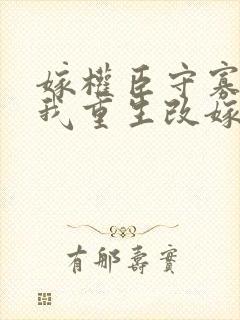 嫁權臣守寡
我重生改嫁
有那壽實